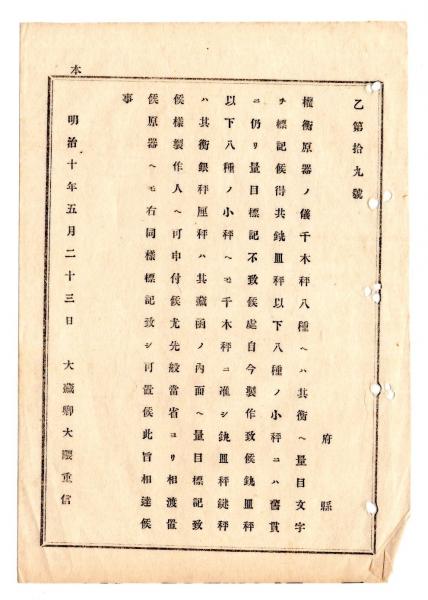 本
乙第拾九號
府縣
權衡原器ノ儀千木秤八種ヘハ其衡ヘ量目文字
ヲ標記候得共鈗皿秤以下八種ノ小秤ニハ舊貫
ニ仍リ量目標記不致候處自今製作致候鈗皿秤
以下八種ノ小秤ヘモ千木秤ニ准シ鈗皿秤鎹秤
ハ其衡銀秤厘秤ハ其藏凾ノ內面ヘ量目標記致
候樣製作人ヘ可申付候尤先般當省ヨリ相渡置
候原器ヘモ右同樣標記致シ可置候此旨相達候
事
明治十年五月二十三日 大藏卿大隈重信